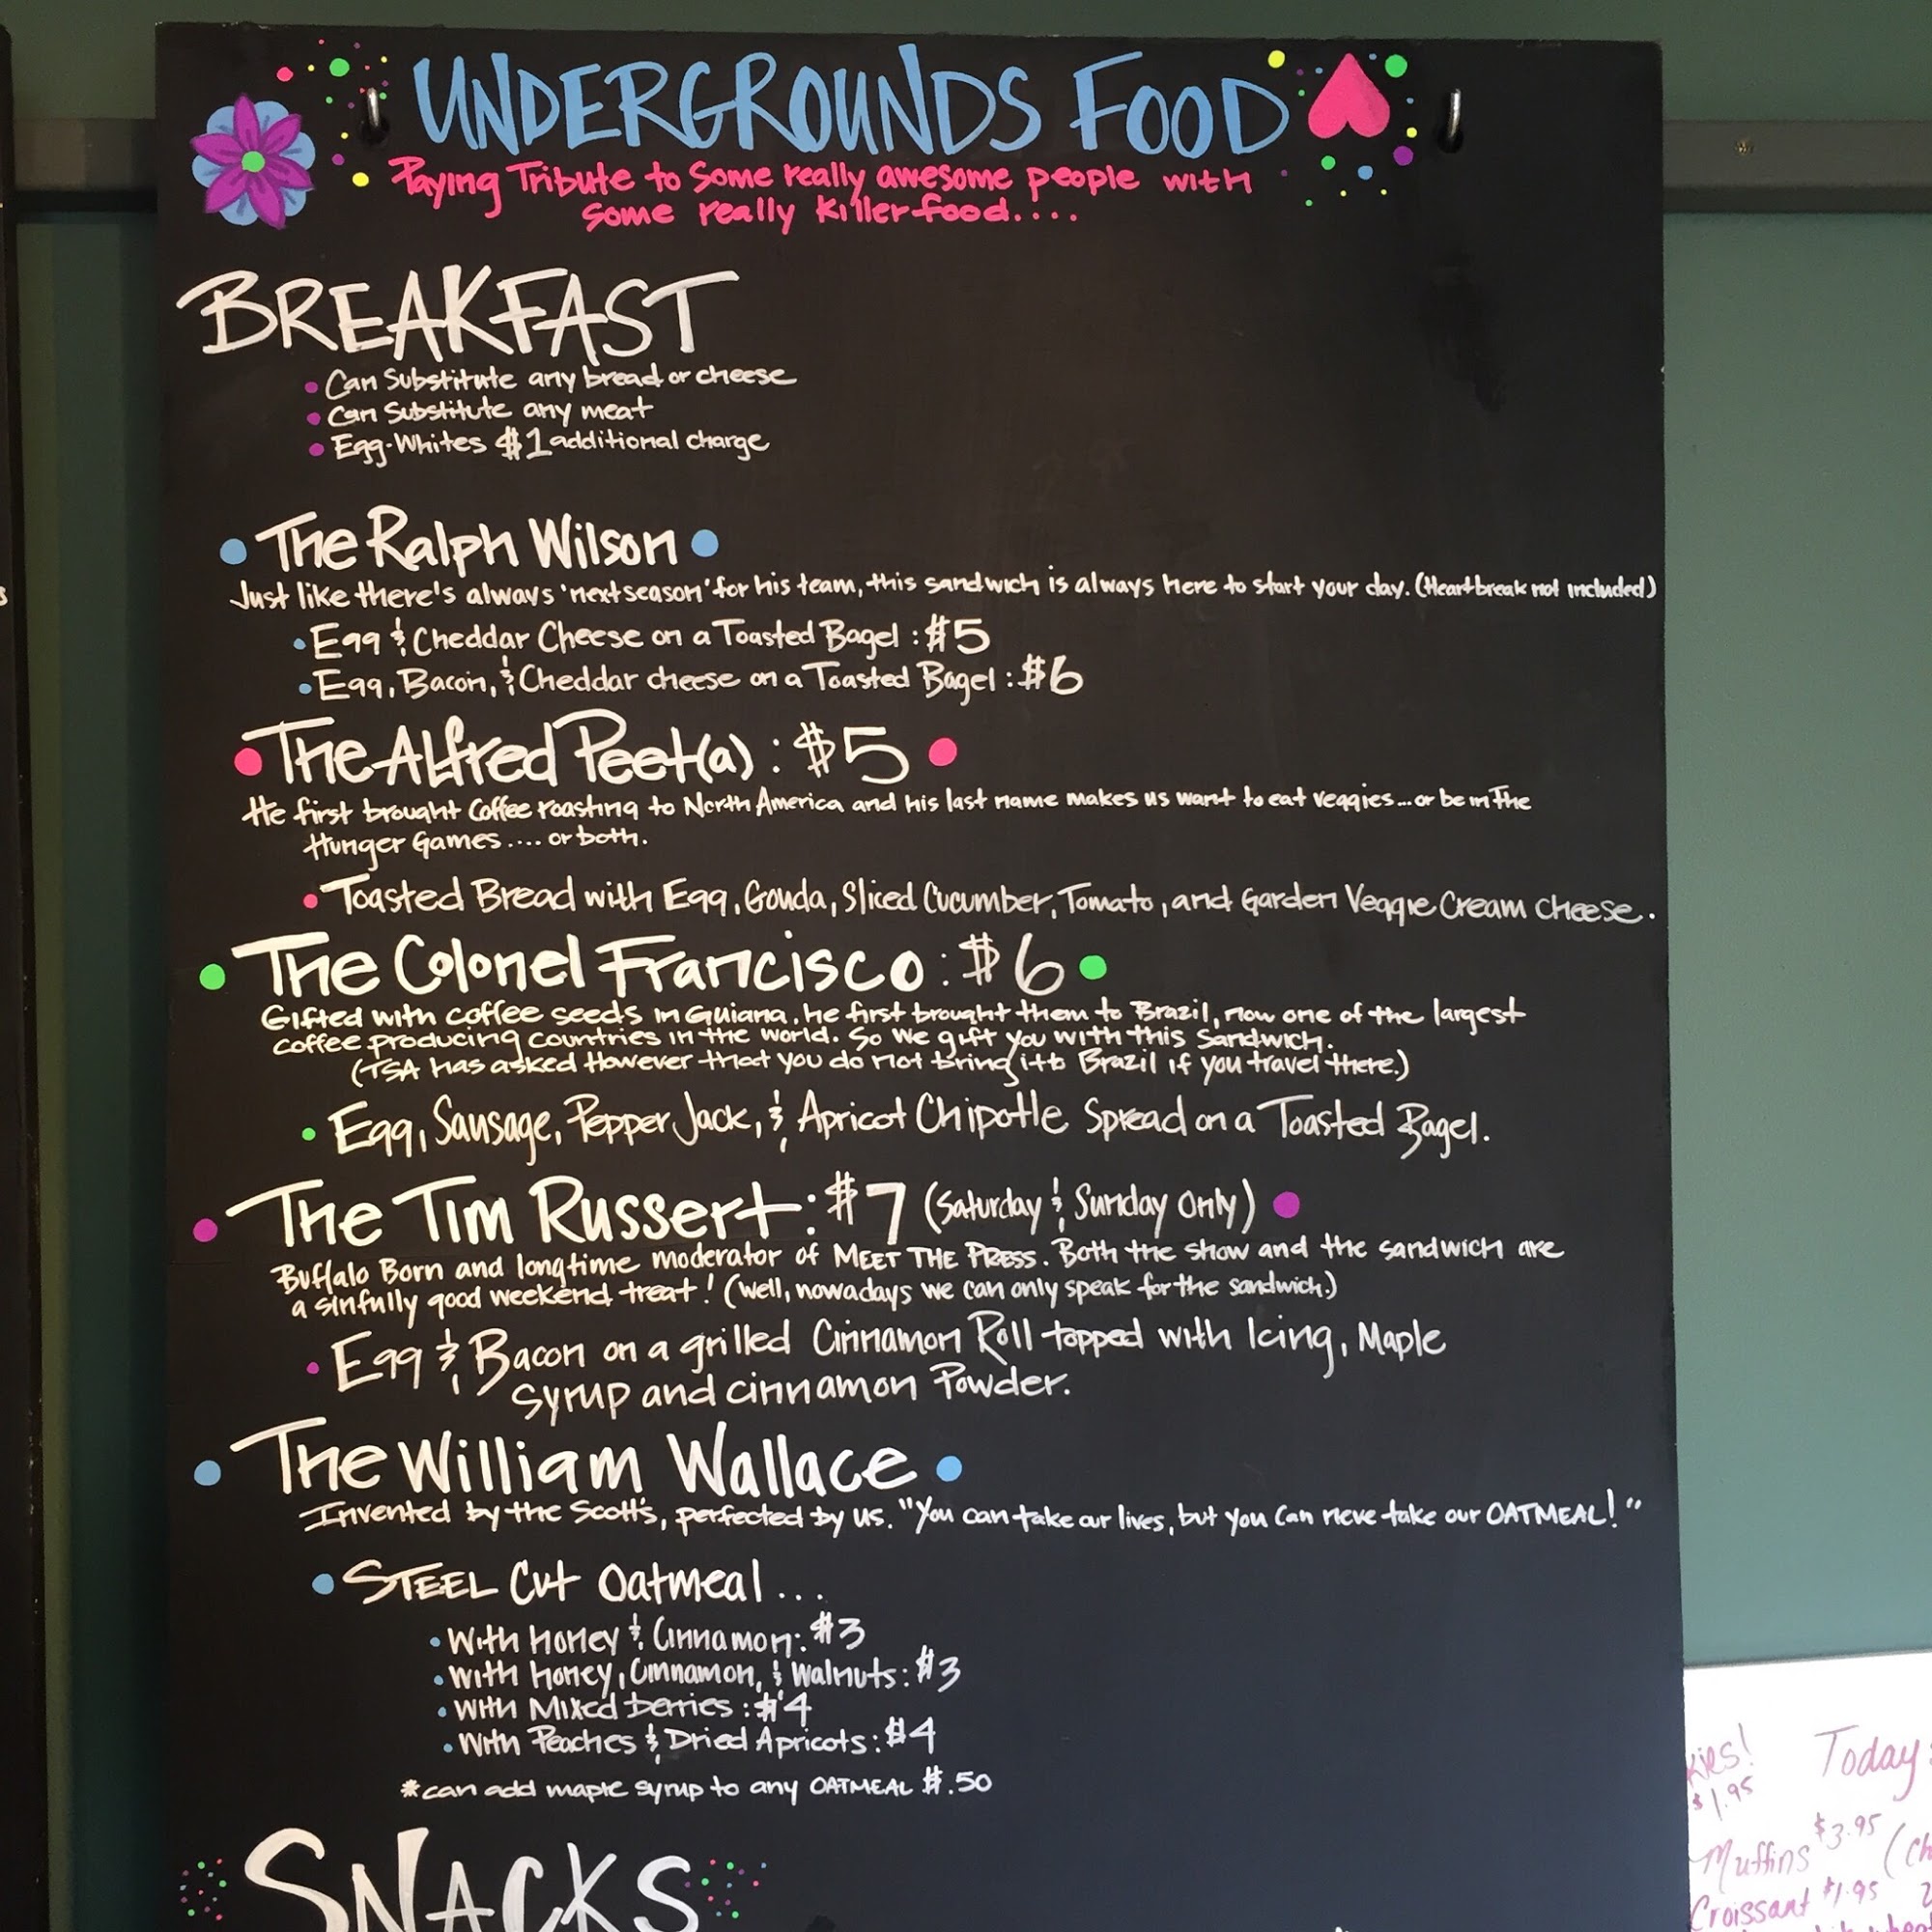 UNDERGROUNDS FOOD
Paying Tribute to Some really awesome people with
some really killer food....
BREAKFAST
• Can Substitute any bread or cheese
• Can Substitute any meat
• Egg-Whites $1 additional charge
• The Ralph Wilson •
Just like there's always 'next season' for his team, this sandwich is always here to start your day. (Heartbreak not included)
• Egg & Cheddar Cheese on a Toasted Bagel: $5
• Egg, Bacon, & Cheddar cheese on a Toasted Bagel: $6
• The Alfred Peet(a): $5 •
He first brought Coffee roasting to North America and his last name makes us want to eat veggies... or be in The
Hunger Games.... or both.
• Toasted Bread with Egg, Gouda, Sliced Cucumber, Tomato, and Garden Veggie Cream cheese.
• The Colonel Francisco: $6 •
Gifted with coffee seeds in Guiana, he first brought them to Brazil, now one of the largest
coffee producing countries in the world. So we gift you with this Sandwich.
(TSA has asked However that you do not bring it to Brazil if you travel there.)
• Egg, Sausage, Pepper Jack, & Apricot Chipotle Spread on a Toasted Bagel.
• The Tim Russert: $7 (Saturday & Sunday Only) •
Buffalo Born and longtime moderator of MEET THE PRESS. Both the show and the sandwich are
a sinfully good weekend treat! (Well, nowadays we can only speak for the sandwich.)
• Egg & Bacon on a grilled Cinnamon Roll topped with Icing, Maple
Syrup and cinnamon Powder.
• The William Wallace •
Invented by the Scott's, perfected by us. "You can take our lives, but you can neve take our OATMEAL!"
• STEEL Cut Oatmeal...
• With honey & Cinnamon: $3
• With honey, Cinnamon, & Walnuts: $3
• With Mixed berries: $4
• With Peaches & Dried Apricots: $4
*can add maple syrup to any OATMEAL $.50
SNACKS
kies!
$1.95
Today
Muffins $3.95 (Ch
Croissant $1.95